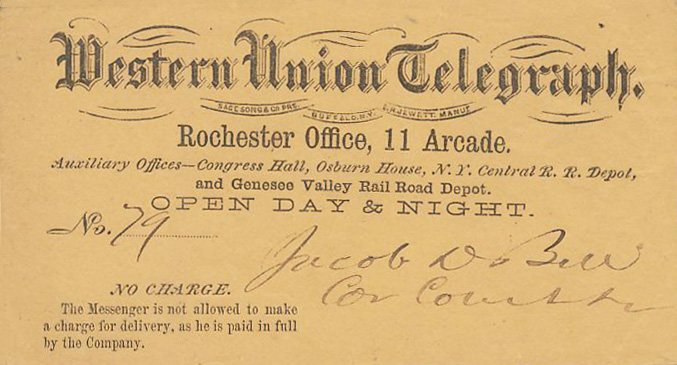 Western Union Telegraph.
SAGE SONS & CO PRS. BUFFALO, N.Y. E.R. JEWETT. MANUF.
Rochester Office, 11 Arcade.
Auxiliary Offices—Congress Hall, Osburn House, N. Y. Central R. R. Depot,
and Genesee Valley Rail Road Depot.
OPEN DAY & NIGHT.
No. 79
Jacob D Bell
Cor
NO CHARGE.
The Messenger is not allowed to make
a charge for delivery, as he is paid in full
by the Company.